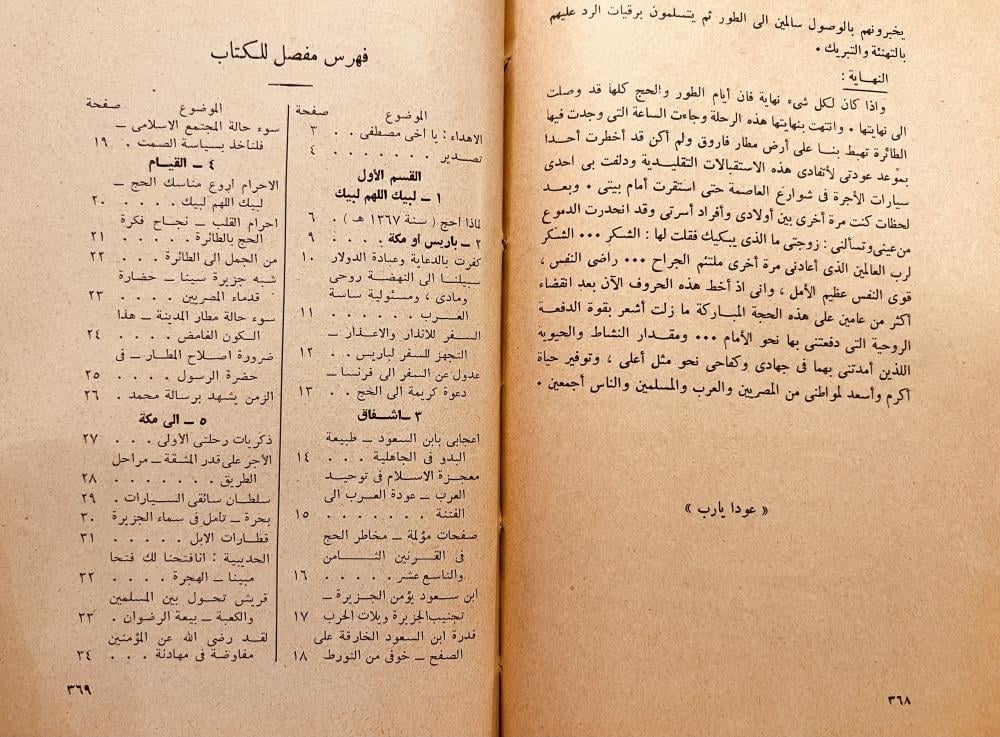 يخبرونهم بالوصول سالمين الى الطور ثم يتسلمون برقيات الرد عليهم
بالتهنئة والتبريك .
النهاية :
واذا كان لكل شىء نهاية فان أيام الطور والحج كلها قد وصلت
الى نهايتها . وانتهت بنهايتها هذه الرحلة وجاءت الساعة التى وجدت فيها
الطائرة تهبط بنا على أرض مطار فاروق ولم أكن قد أخطرت أحدا
بموعد عودتى لأتفادى هذه الاستقبالات التقليدية ودلفت بى احدى
سيارات الأجرة فى شوارع العاصمة حتى استقرت أمام بيتى . وبعد
لحظات كنت مرة أخرى بين أولادى وأفراد أسرتى وقد انحدرت الدموع
من عينى وتسألنى : زوجتى ما الذى يبكيك فقلت لها : الشكر ... الشكر
لرب العالمين الذى أعادنى مرة أخرى ملتئم الجراح ... راضى النفس ،
قوى النفس عظيم الأمل ، وانى اذ أخط هذه الحروف الآن بعد انقضاء
أكثر من عامين على هذه الحجة المباركة ما زلت أشعر بقوة الدفعة
الروحية التى دفعتنى بها نحو الأمام ... ومقدار النشاط والحيوية
اللذين أمدتنى بهما فى جهادى وكفاحى نحو مثل أعلى ، وتوفير حياة
أكرم وأسعد لمواطنى من المصريين والعرب والمسلمين والناس أجمعين .
« عودا يارب »
٣٦٨
فهرس مفصل للكتاب
الموضوع صفحة
الاهداء : يا أخى مصطفى . . ٣
تصدير . . . . . . . ٤
القسم الأول
١ ــ لبيك اللهم لبيك
لماذا أحج ( سنة ١٣٦٧ هـ ) . ٦
٢ ــ باريس أو مكة . . . . ٩
كفرت بالدعاية وعبادة الدولار ١٠
سبيلنا الى النهضة روحى
ومادى ، ومسئولية ساسة
العرب . . . . . . ١١
السفر للانذار والاعذار ــ
التجهز للسفر لباريس . . ١٢
عدول عن السفر الى فرنسا ــ
دعوة كريمة الى الحج . . ١٣
٣ ــ اشفاق
اعجابى بابن السعود ــ طبيعة
البدو فى الجاهلية . . . ١٤
معجزة الاسلام فى توحيد
العرب ــ عودة العرب الى
الفتنة . . . . . . . ١٥
صفحات مؤلمة ــ مخاطر الحج
فى القرنين الثامن
والتاسع عشر . . . . . ١٦
ابن سعود يؤمن الجزيرة ــ
تجنيب الجزيرة ويلات الحرب ١٧
قدرة ابن السعود الخارقة على
الصفح ــ خوفى من التورط ١٨
الموضوع صفحة
سوء حالة المجتمع الاسلامى ــ
فلنأخذ بسياسة الصمت . ١٩
٤ ــ القيام
الاحرام أروع مناسك الحج ــ
لبيك اللهم لبيك . . . . ٢٠
احرام القلب ــ نجاح فكرة
الحج بالطائرة . . . . . ٢١
من الجمل الى الطائرة . . . ٢٢
شبه جزيرة سينا ــ حضارة
قدماء المصريين . . . . ٢٣
سوء حالة مطار المدينة ــ هذا
الكون الغامض . . . . ٢٤
ضرورة اصلاح المطار ــ فى
حضرة الرسول . . . . ٢٥
الزمن يشهد برسالة محمد . ٢٦
٥ ــ الى مكة
ذكريات رحلتى الأولى . . . ٢٧
الأجر على قدر المشقة ــ مراحل
الطريق . . . . . . . ٢٨
سلطان سائقى السيارات . ٢٩
بحرة ــ تأمل فى سماء الجزيرة ٣٠
قطارات الابل . . . . . ٣١
الحديبية : انا فتحنا لك فتحا
مبينا ــ الهجرة . . . . ٣٢
قريش تحول بين المسلمين
والكعبة ــ بيعة الرضوان . ٣٣
لقد رضى الله عن المؤمنين
مفاوضة فى مهادنة . . . ٣٤
٣٦٩